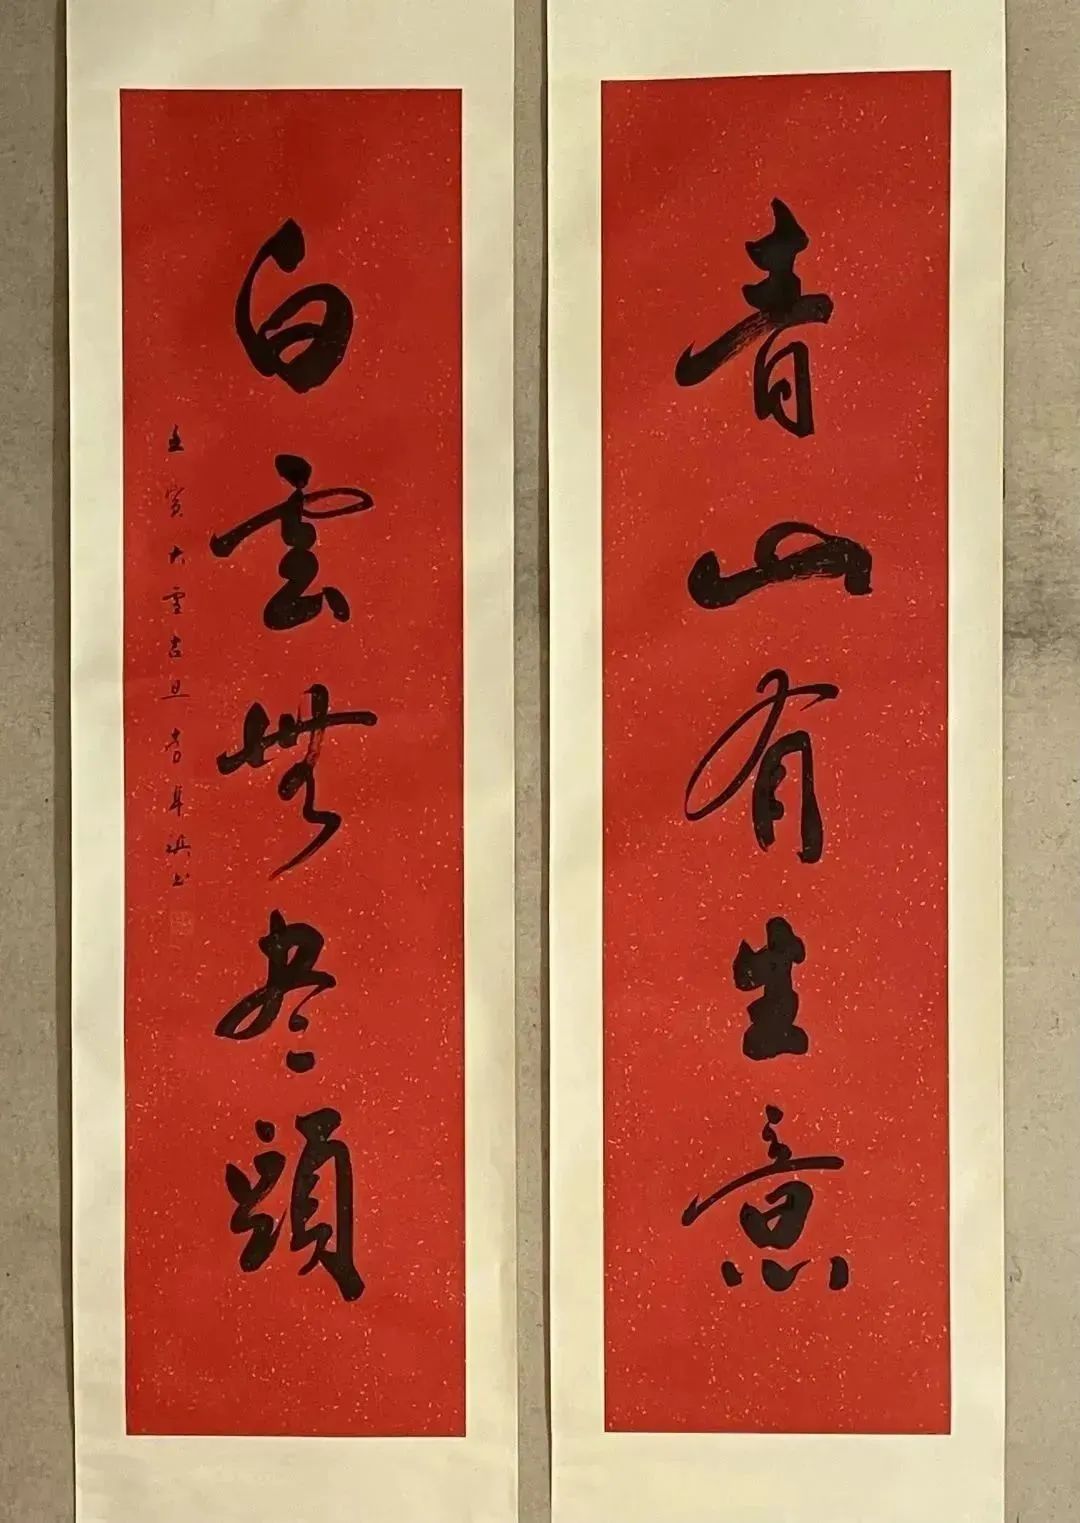 青山有生意
白雲無尽頭
壬寅大雪吉旦